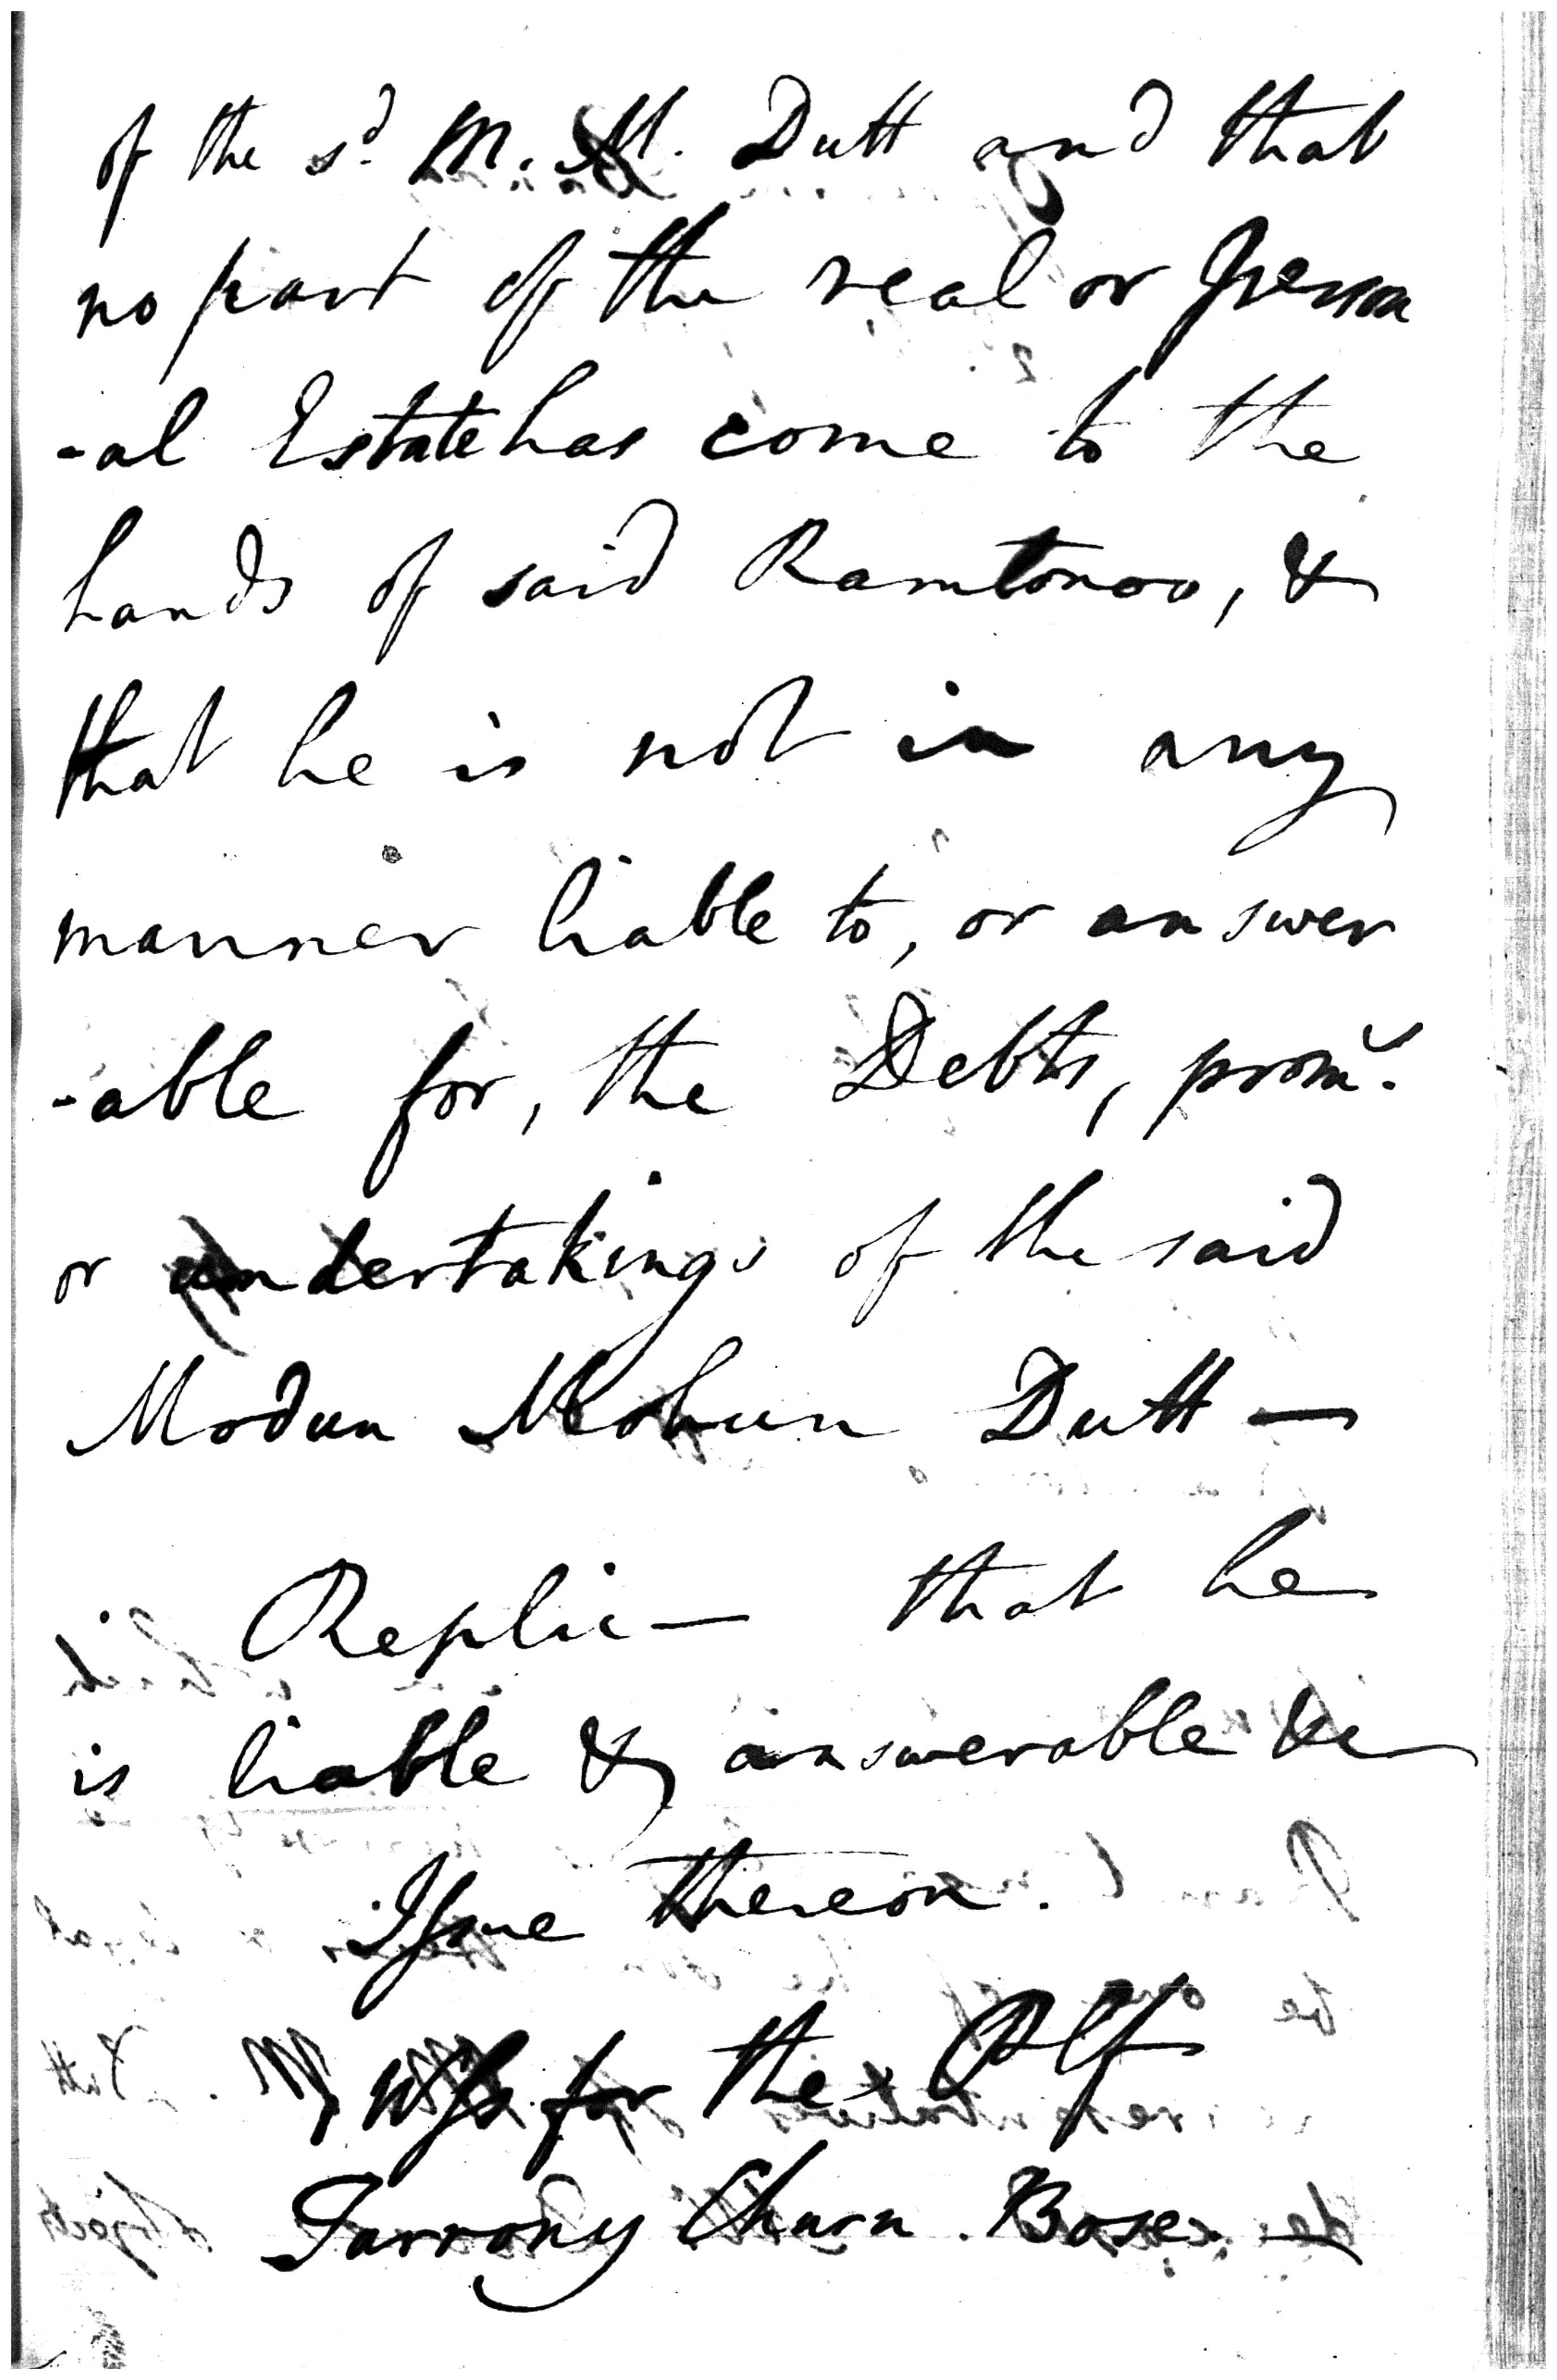 of the sd. M. M. Dutt and that
no part of the real or Person
-al Estate has come to the
hands of said Ramtonoo, &
that he is not in any
manner liable to, or answer
-able for, the Debts, prom.
or undertakings of the said
Modun Mohun Dutt —
Replic— that he
is liable & answerable &c
Issue thereon.
Wss. for the Plf
Tarrony Churn Bose —